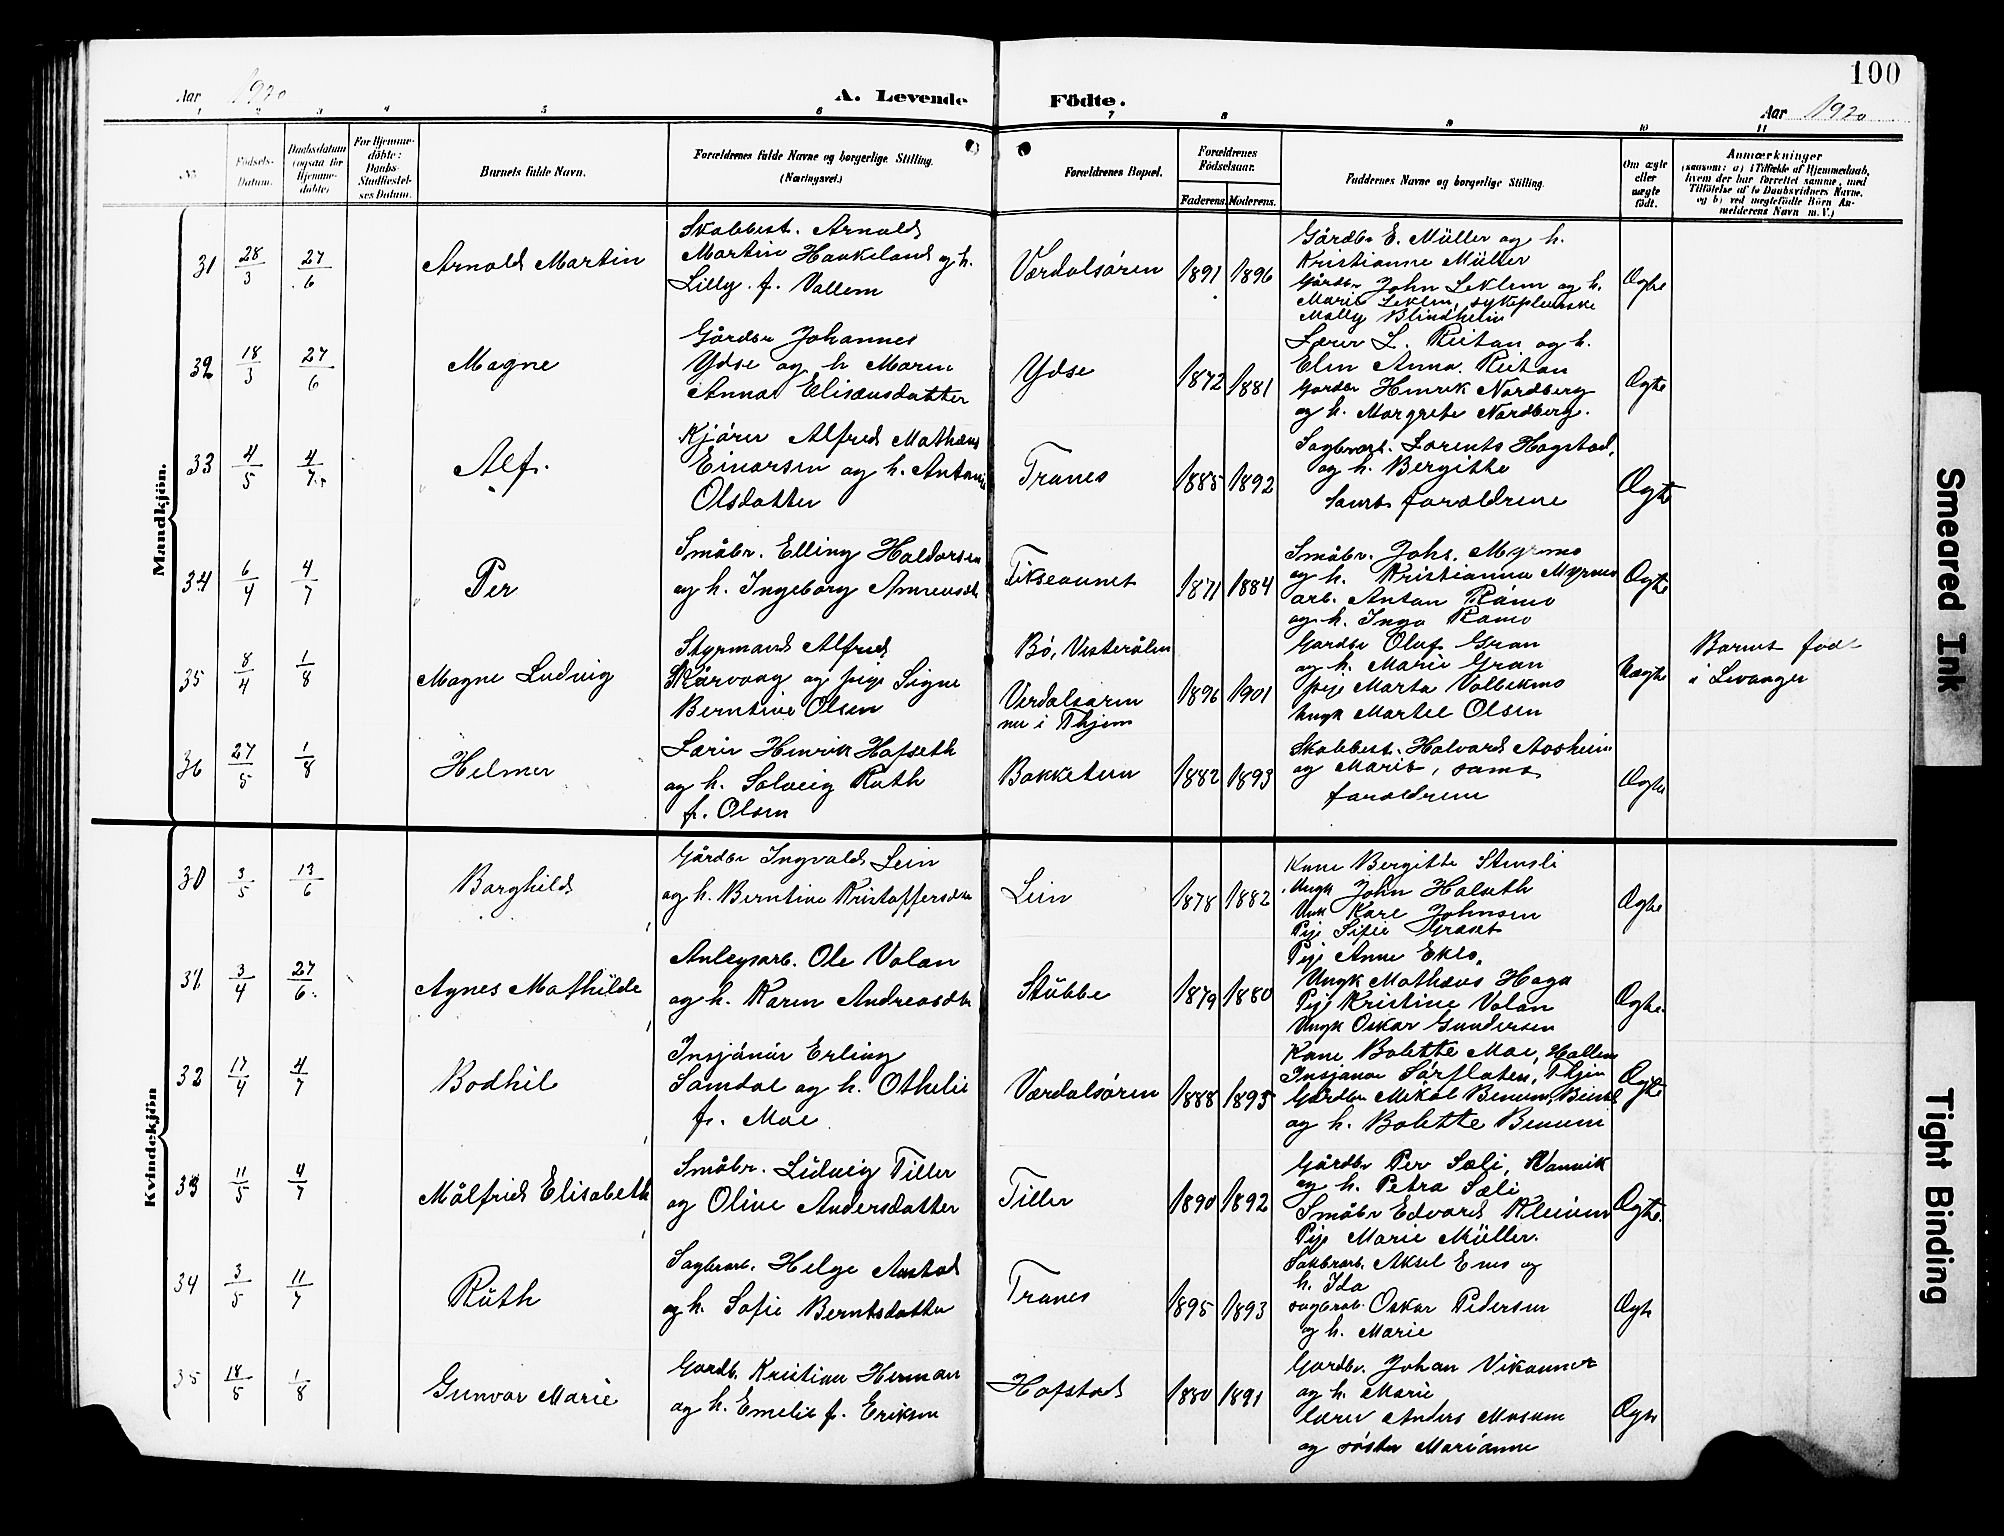 100
Aar 1920
A. Levende Födte.
Aar 1920
1 2 3 4 5 6 7 8 9 10 11
No.
Födsels-Datum.
Daabsdatum (ogsaa for Hjemmedöbte)
For Hjemmedöbte: Daabs-Stadfæstelses Datum.
Barnets fulde Navn.
Forældrenes fulde Navne og borgerlige Stilling. (Næringsvei.)
Forældrenes Bopæl.
Forældrenes Födselsaar.
Faderens. Moderens.
Faddernes Navne og borgerlige Stilling.
Om ægte eller uægte födt.
Anmærkninger
(saasom: a) i Tilfælde af Hjemmedaab, hvem der har forrettet samme, med Tilföielse af to Daabsvidners Navne, og b) ved uægtefödte Börn Anmelderens Navn m. V.)
Mandkjön.
31 28/3 27/6 Arnold Martin
Skobbest. Arnold
Martin Haukeland og h.
Lilly f. Vollem
Værdalsören 1891 1896
Gårdbr E. Müller og h.
Kristianne Müller
Gårdbr John Leklem og h.
Marie Leklem, sykepleierske
Molly Blindheim
Ægte
32 18/3 27/6 Magne
Gårdbr Johannes
Ydse og h Maren
Anna Eliseusdatter
Ydse 1872 1881
Lærer L. Ristan og h.
Elen Anna Ristan
Gardbr Henrik Nordberg
og h. Margrete Nordberg.
Ægte
33 4/5 4/7 Alf.
Kjörer Alfred Mathæus
Einarsen og h. Antonie
Olsdatter
Tranes 1885 1892
Sagbrarb. Lorents Hagstad,
og h. Bergitte
samt forældrene
Ægte
34 6/4 4/7 Per
Småbr. Elling Haldorsen
og h. Ingeborg Andreasdtr
Tikseaunet 1871 1884
Småbr. Johs. Myrmo
og h. Kristianna Myrmo
arb. Anton Rámo
og h. Inga Ramo
Ægte
35 8/4 1/8 Magne Ludvig
Styrmand Alfred
Skarvaag og pige Signe
Berntine Olsen
Bö, Vesterålen
Verdalsören
nu i Thjem
1896 1901
Gardbr Oluf Gran
og h. Marie Gran
pige Marta Volbekmo
Ungk Martel Olsen
Uægte
Barnet född
i Levanger
36 27/5 1/8 Helmer
Lærer Henrik Hofseth
og h. Solveig Ruth
f. Olsen
Bakketun 1882 1893
Skobbest. Halvard Aasheim
og Marit, samt
forældrene
Ægte
Kvindekjön
30 3/5 13/6 Borghild
Gårdbr Ingvald Lein
og h. Berntine Kristoffersdtr
Lein 1878 1882
Kone Bergitte Stensli
Ungk John Halseth
Unk Kare Johnsen
Pige Sifie Græset
Ægte
31 3/4 27/6 Agnes Mathilde
Anlegsarb. Ole Volan
og h. Karen Andreasdtr
Stubbe 1879 1880
Pige Anne Eklo,
Ungk Mathæus Haga
Pige Kristine Volan
Ungk Oskar Gundersen
Ægte.
32 17/4 4/7 Bodhil
Insjönör Erling
Samdal og h. Othelie
f. Moe
Værdalsören 1888 1895
Kone Bolette Moe, Hallem
Insjönör Sörfloten, Thjem
Gardbr Mikal Benum, Beitst
og h. Bolette Benum
Ægte
33 11/5 4/7 Målfrid Elisabeth
Småbr. Ludvig Tiller
og Oline Andersdatter
Tiller 1890 1892
Gårdbr Per Sæli, Vannvik
og h. Petra Sæli
Småbr Edvard Kleivem
Pige Marie Müller.
Ægte.
34 3/5 11/7 Ruth
Sagbrarb. Helge Aastad
og h. Sofie Berntsdatter
Tranes 1895 1893
Sakbrarb. Aksel Enes og
h. Ida
sagbrarb. Oskar Pedersen
og h. Marie
Ægte
35 18/5 1/8 Gunvor Marie
Gardb. Kristian Herman
og h. Emelie f. Eriksen
Hofstad 1880 1891
Gardbr. Johan Vikaunet
og h. Marie
lærer Anders Masum
og söster Marianne
Ægte
Smeared Ink
Tight Binding